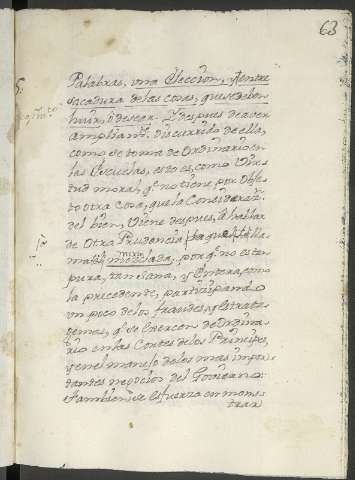 63
Palabras, una Eleccion, y entre
sacadura de las cosas, que se deben
huir, ò desear. Y despues de aver
ampliamte. discurrido de ella,
como se toma de Ordinario en
las Escuelas, esto es, como Vir
tud moral, qe. no tiene por Obje
to otra cosa, que la Consideracn.
del bien, Viene despues, à hablar
de Otra Prudencia la que llama
mixta
mezclada, porqe. no es tan
pura, tan Sana, y Entera, como
la precedente, participando
un poco de los fraudes, y Estrata
gemas, qe. se Exercen de Ordina
rio en las Cortes de los Principes,
y en el manejo de los mas impor
dantes negocios del Govierno:
tambien se esfuerza en mons
trar